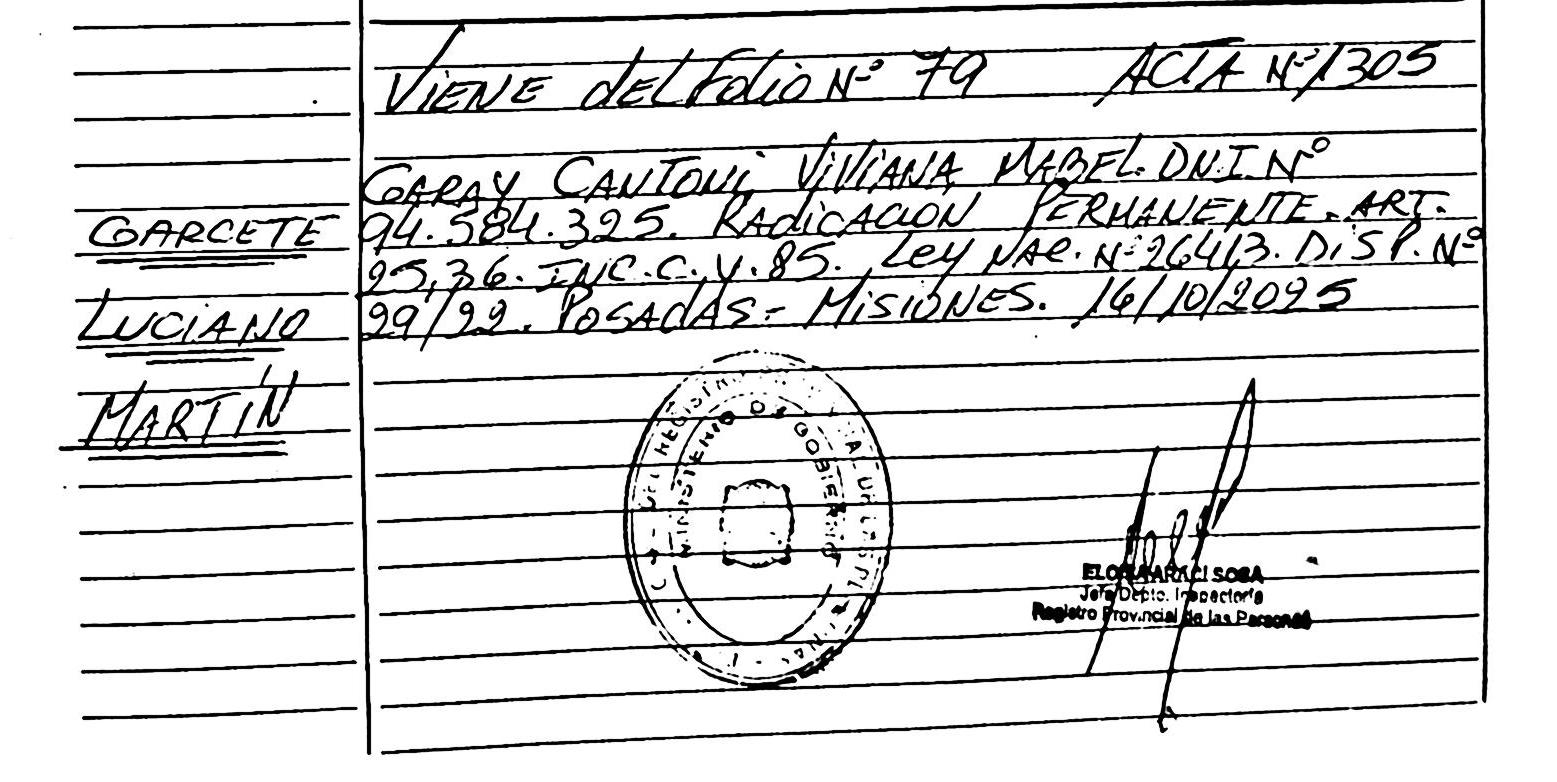 VIENE dEL FOLIO Nº 79 ACTA Nº 1305
GARAY CANTONI VIVIANA MABEL. DNI. Nº
94.584.325. RADICACION PERMANENTE. ART.
25,36. INC. C. Y. 85. LEY NAC. Nº 26413. DISP. Nº
29/22. POSADAS - MISIONES. 16/10/2025
GARCETE
LUCIANO
MARTÍN
MINISTERIO DE GOBIERNO
SOSA
Jefa Depto. Inspectoría
Registro Provincial de las Personas